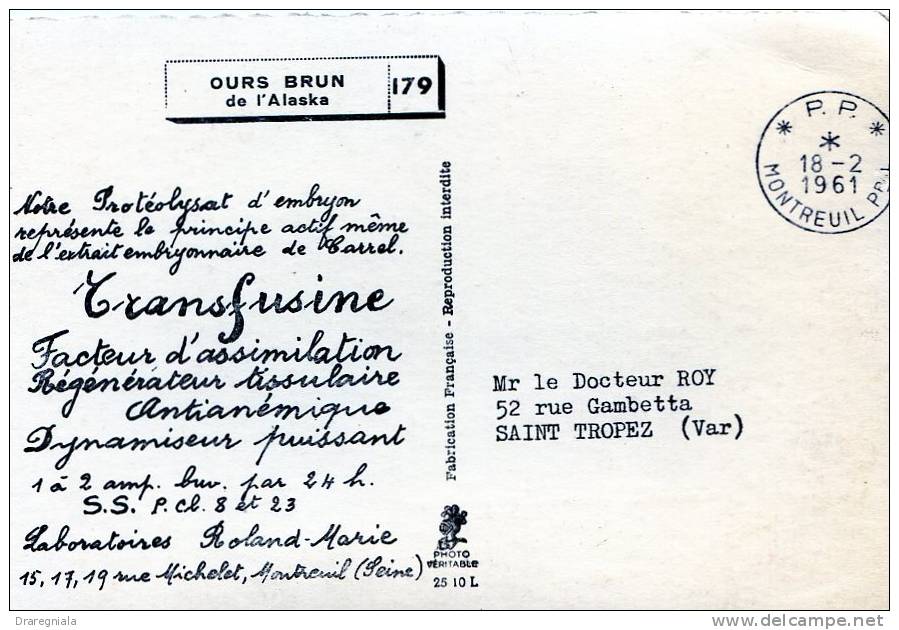 OURS BRUN
de l'Alaska
179
* P. P. *
*
18-2
1961
MONTREUIL
Notre Protéolysat d'embryon
représente le principe actif même
de l'extrait embryonnaire de Carrel.
Transfusine
Facteur d'assimilation
Régénérateur tissulaire
Antianémique
Dynamiseur puissant
1 à 2 amp. buv. par 24 h.
S.S. P. Cl. 8 et 23
Laboratoires Roland-Marie
15, 17, 19 rue Michelet, Montreuil (Seine)
Fabrication Française - Reproduction interdite
PHOTO
VÉRITABLE
25 10 L
Mr le Docteur ROY
52 rue Gambetta
SAINT TROPEZ (Var)
Draregniala
delcampe.net